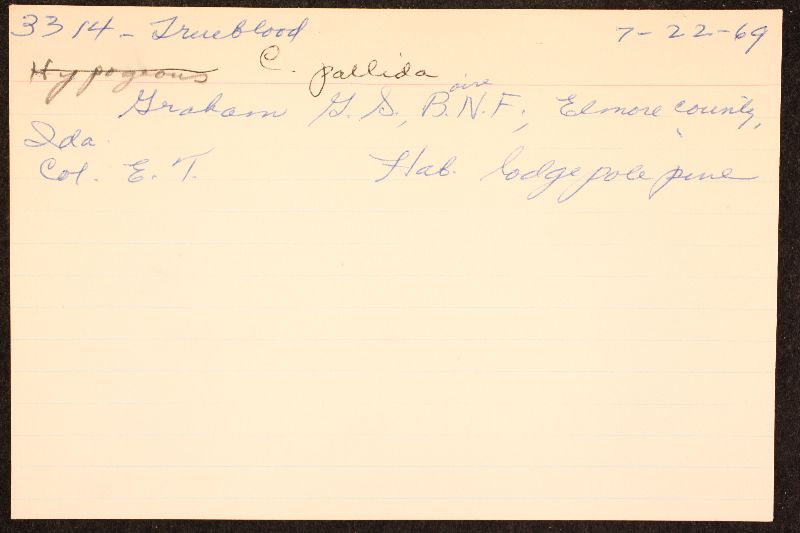 3314 - Trueblood 7-22-69
Hypogeous C. pallida
Graham G. S., B. N. F., Elmore county,
Ida.
Col. E. T. Hab. lodgepole pine